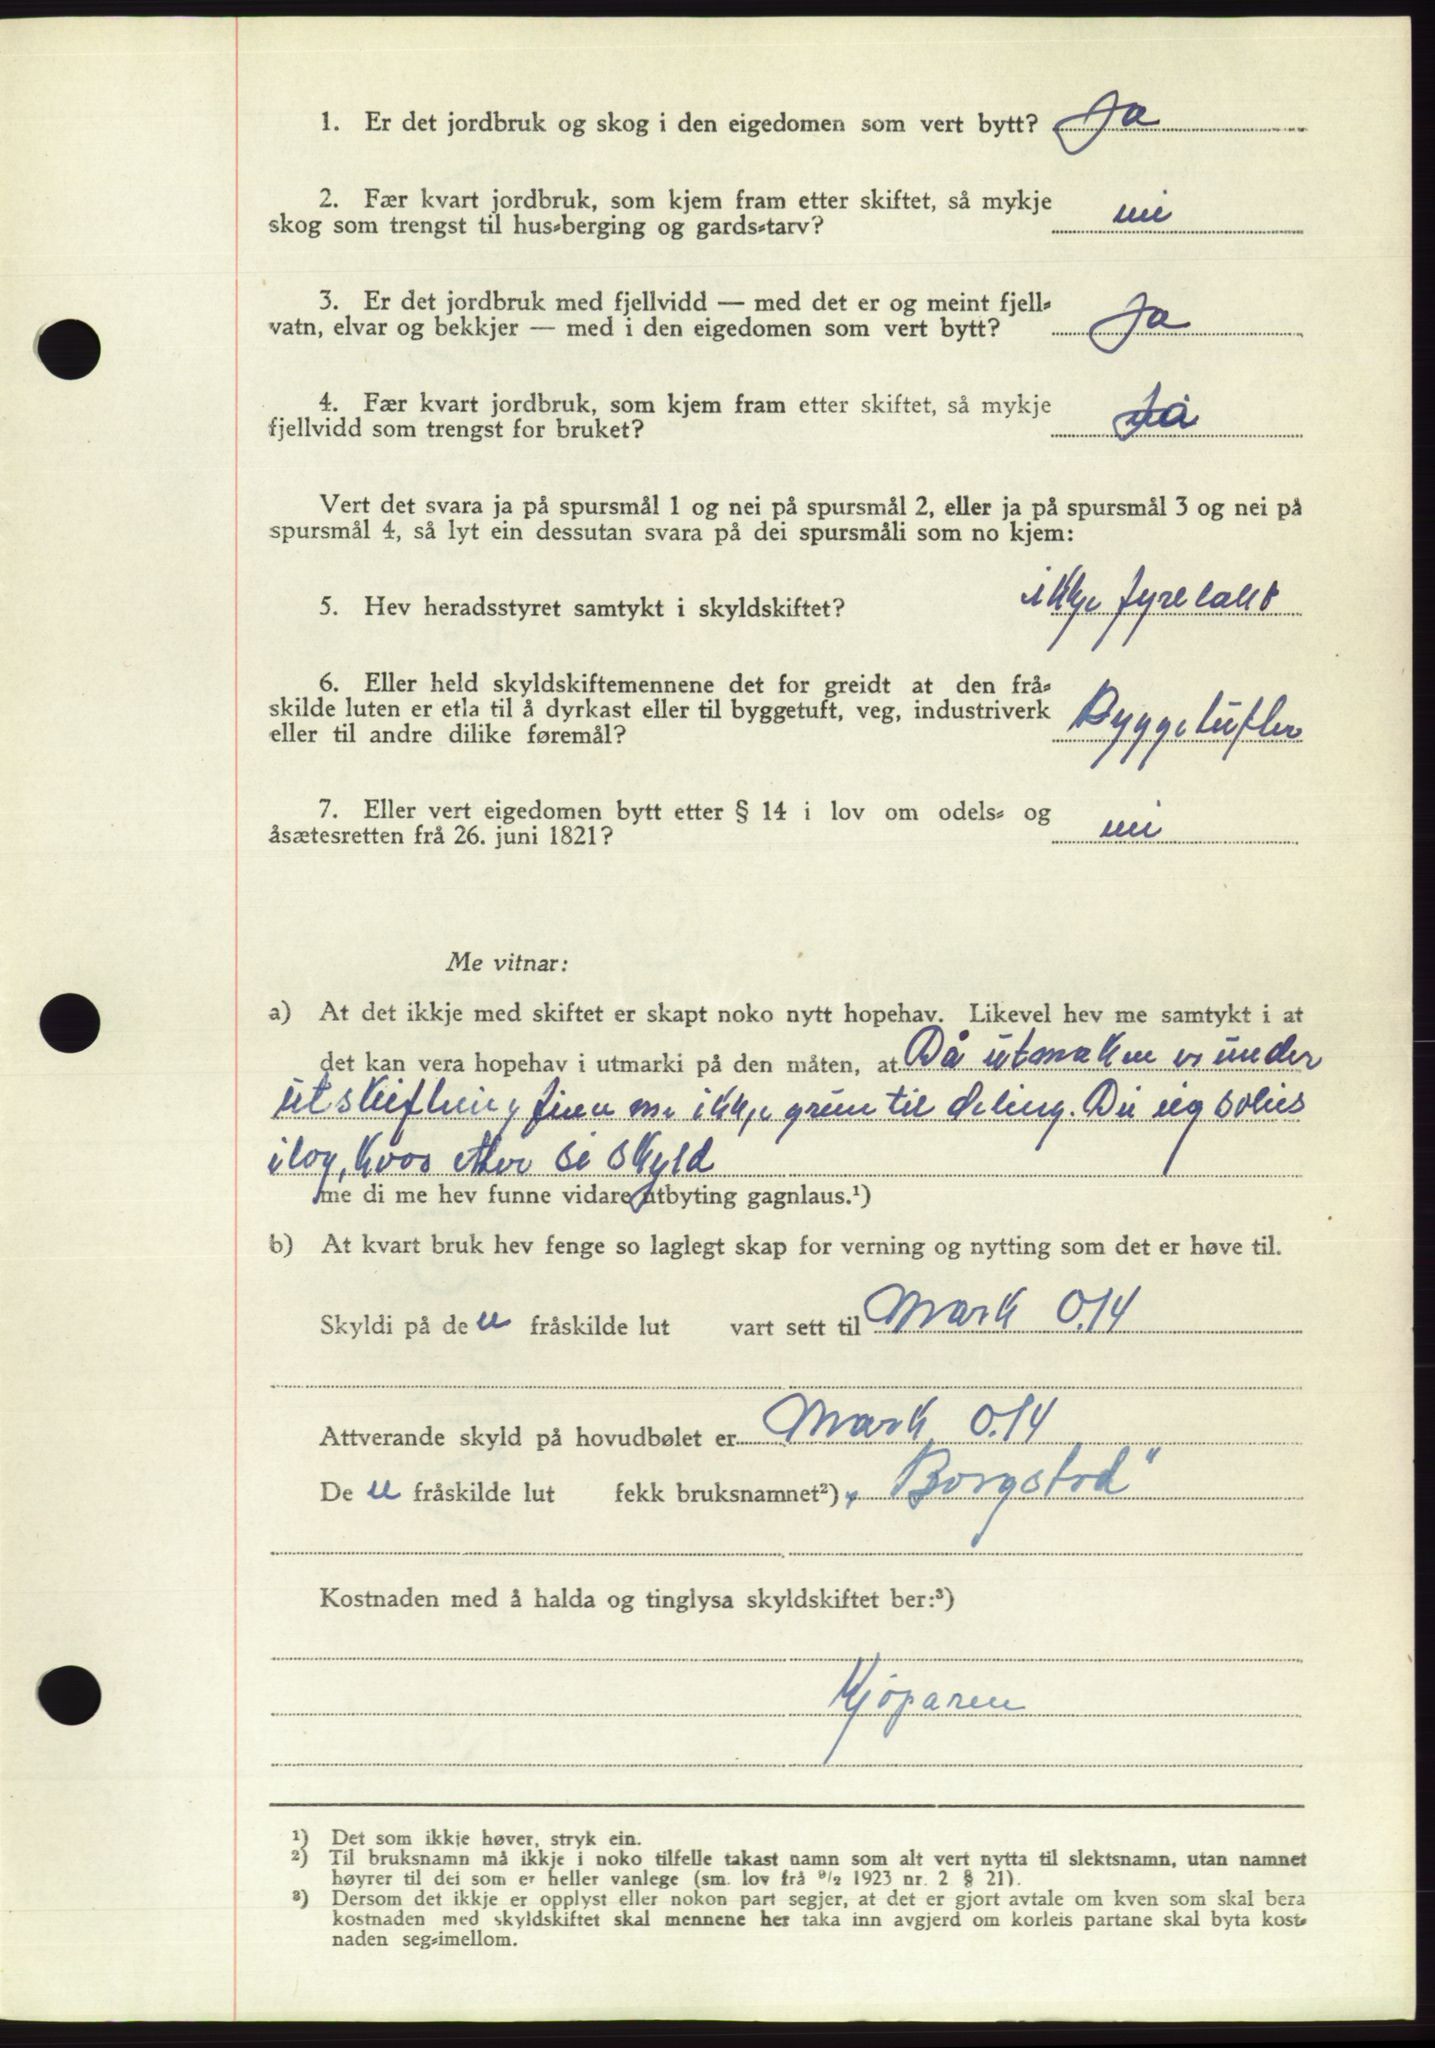 1. Er det jordbruk og skog i den eigedomen som vert bytt? Ja
2. Fær kvart jordbruk, som kjem fram etter skiftet, så mykje
skog som trengst til hus-berging og gards-tarv? nei
3. Er det jordbruk med fjellvidd — med det er og meint fjell-
vatn, elvar og bekkjer — med i den eigedomen som vert bytt? Ja
4. Fær kvart jordbruk, som kjem fram etter skiftet, så mykje
fjellvidd som trengst for bruket? Ja
Vert det svara ja på spursmål 1 og nei på spursmål 2, eller ja på spursmål 3 og nei på
spursmål 4, så lyt ein dessutan svara på dei spursmåli som no kjem:
5. Hev heradsstyret samtykt i skyldskiftet? ikkje fyrelagt
6. Eller held skyldskiftemennene det for greidt at den frå-
skilde luten er etla til å dyrkast eller til byggetuft, veg, industriverk
eller til andre dilike føremål? Byggetufter
7. Eller vert eigedomen bytt etter § 14 i lov om odels- og
åsætesretten frå 26. juni 1821? nei
Me vitnar:
a) At det ikkje med skiftet er skapt noko nytt hopehav. Likevel hev me samtykt i at
det kan vera hopehav i utmarki på den måten, at Då utmarken er under
utskifting finn me ikkje grun til deling. Du eig
i log, kvar etter si skyld
me di me hev funne vidare utbyting gagnlaus.¹)
b) At kvart bruk hev fenge so laglegt skap for verning og nytting som det er høve til.
Skyldi på de n fråskilde lut vart sett til Mark 0.14
Attverande skyld på hovudbølet er Mark 0.14
De n fråskilde lut fekk bruksnamnet²) "Borgstod"
Kostnaden med å halda og tinglysa skyldskiftet ber:³)
Kjøparen
¹) Det som ikkje høver, stryk ein.
²) Til bruksnamn må ikkje i noko tilfelle takast namn som alt vert nytta til slektsnamn, utan namnet
høyrer til dei som er heller vanlege (sm. lov frå 9/2 1923 nr. 2 § 21).
³) Dersom det ikkje er opplyst eller nokon part segjer, at det er gjort avtale om kven som skal bera
kostnaden med skyldskiftet skal mennene her taka inn avgjerd om korleis partane skal byta kost-
naden seg-imellom.